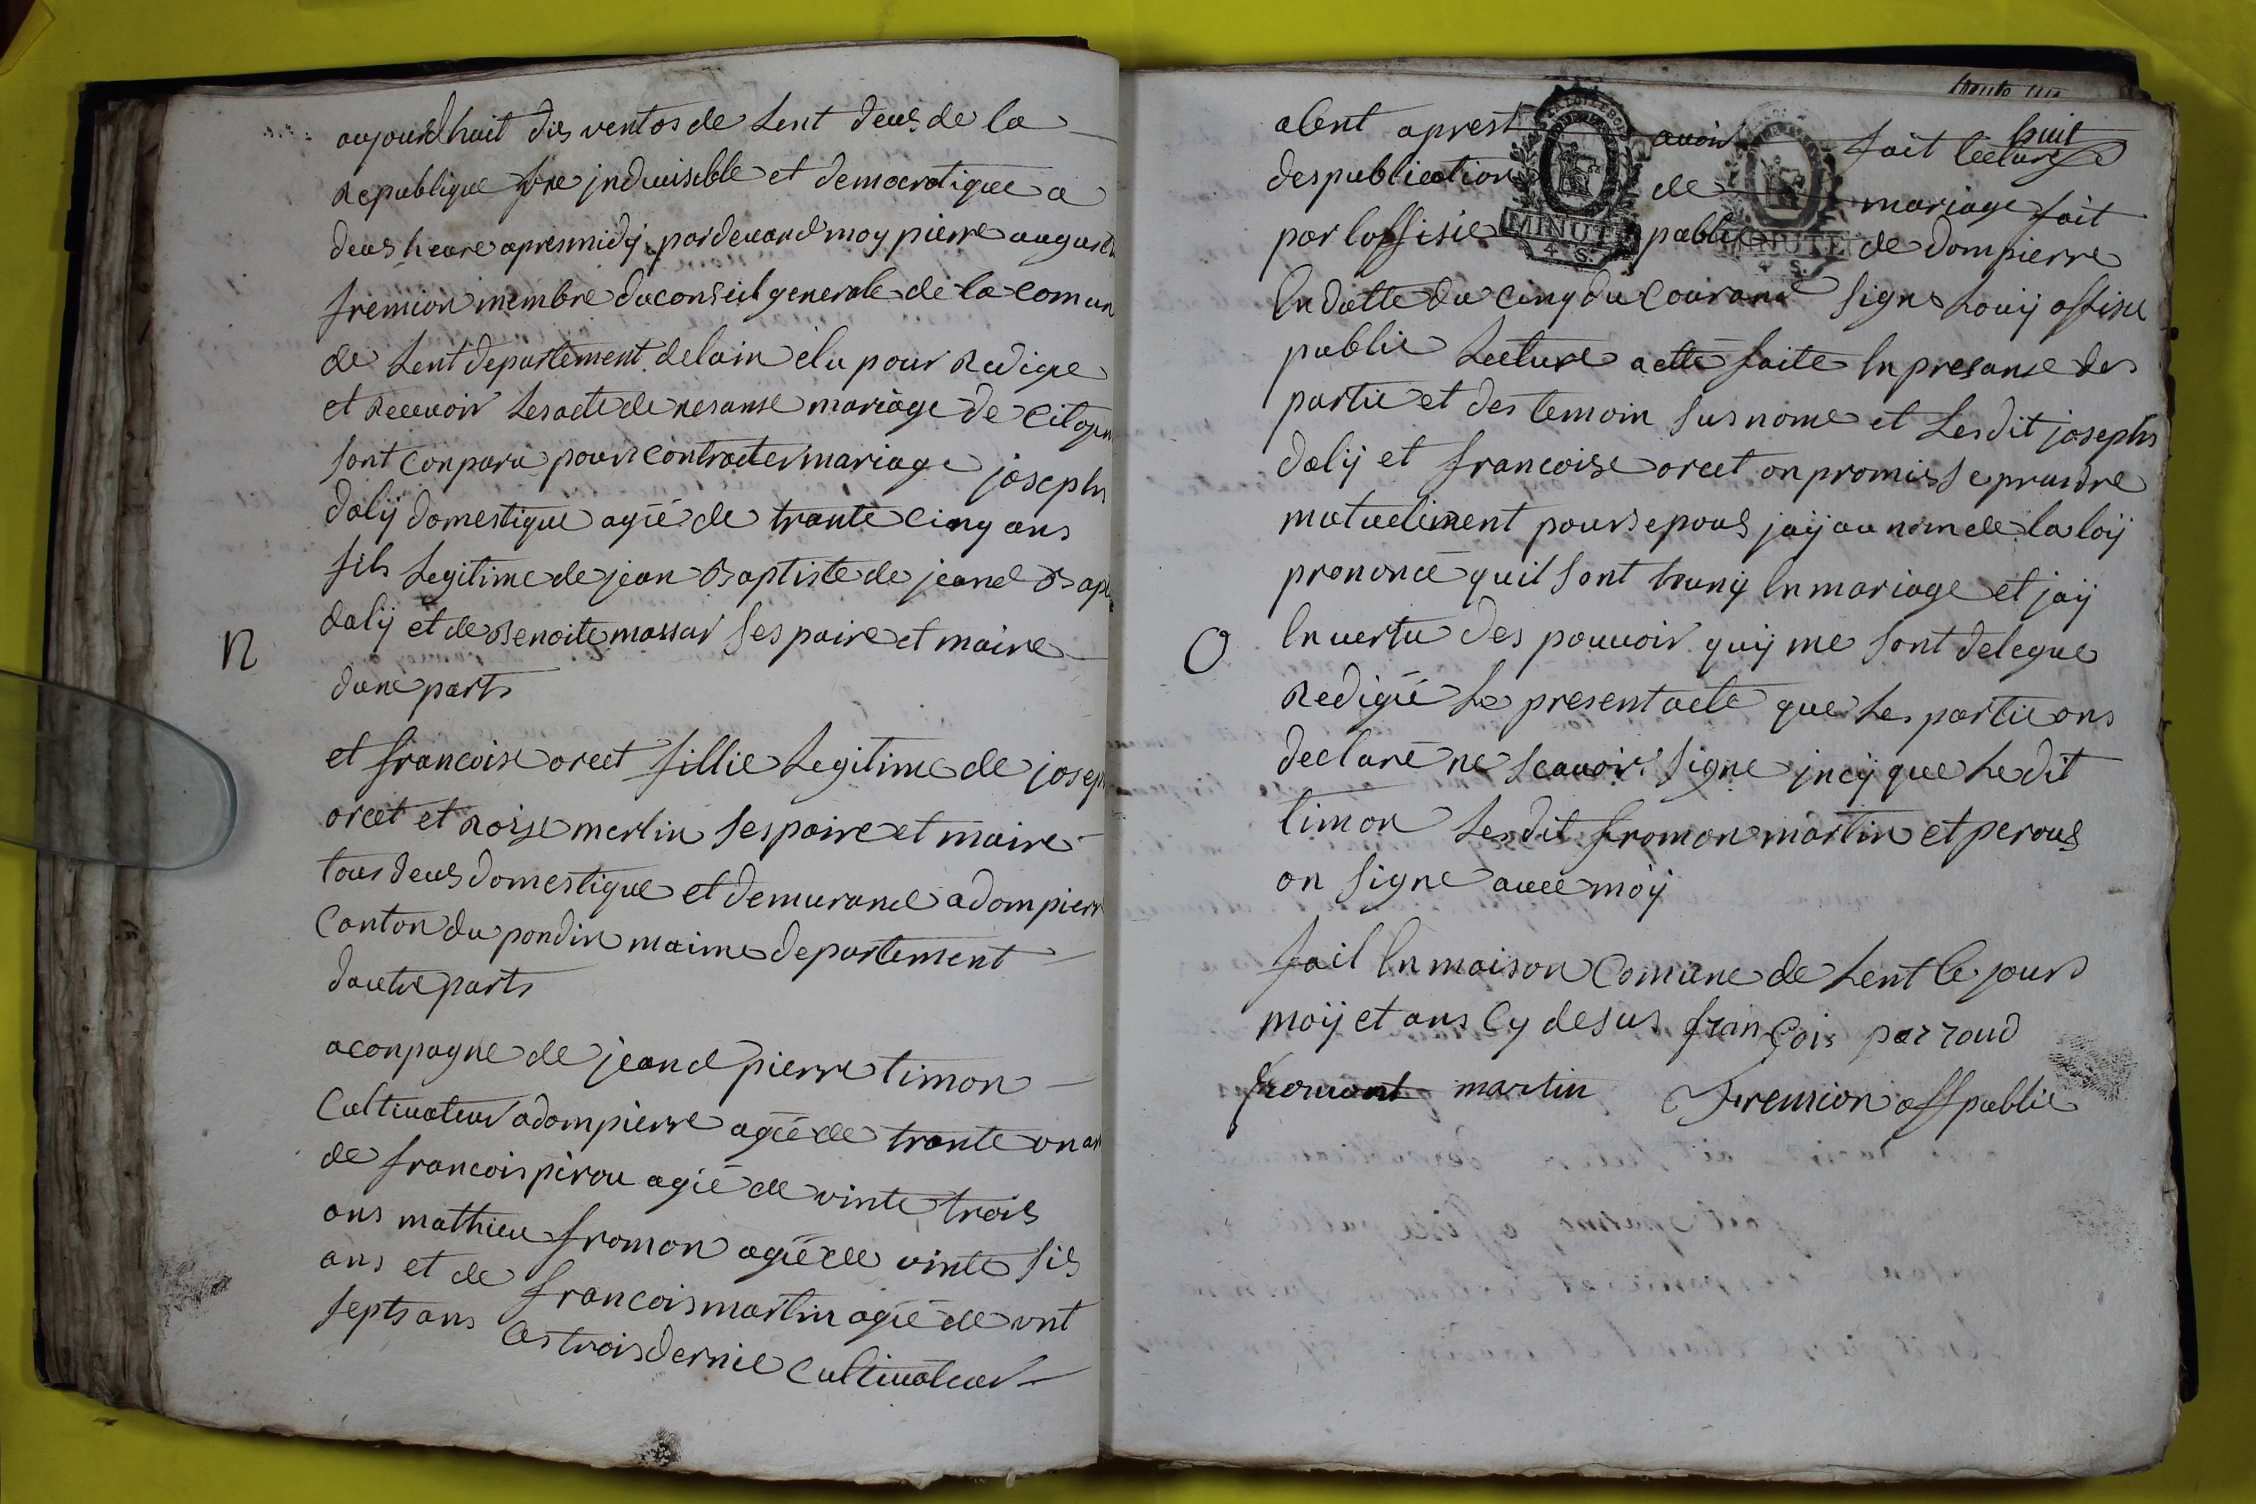 aujourdhuit dis ventos de Lent deus de la
Republique fre jndiuisible et democratique a
deus heure apresmidy pardeuand moy pierre august
fremion membre du conseil generale de la comun
de Lent departement delain elu pour Redige
et Receuoir Les acte de nesanse mariage de Citoyen
sont conparu pour contracter mariage josephs
daly domestique agié de trante cinq ans
fils Legitime de jean Baptiste de jeand Bap
daly et de Benoite massar ses paire et maire
n
dune parts
et francoise orcet fillie Legitime de joseph
orcet et Roise merlin ses paire et maire
tous deus domestique et demurand a dompierr
Canton du pondin maime departement
dautre parts
aconpagne de jeand pierre timon
Cultiuateur a dompierre agié de trante un an
de francois pirou agié de vinte trois
ans mathieu fromon agié de vinte sis
ans et de francois martin agié de vnt
septs ans Les trois dernie Cultiuateur
huit
alent aprest auoir fait lecture
des publication de mariage fait
par loffisie public de dompierre
MINUTE
4 S.
MINUTE
4 S.
En datte du cinq du courant signe Louij offisie
public Lecture a etté faite En presanse des
partie et des temoin susnome et Lesdit josephs
dalij et francoise orcet on promis se prandre
matuelement pour sepous jaij au nom de la loij
prononcé quil sont Eunij En mariage et jaij
O
En vertu des pouuoir quij me sont delegue
Redigié Le present acte que Les partie ons
declaré ne scauoir signe jncij que Ledit
timon Lesdit fromon martin et perous
on signe auec moij
fait En maison Comune de Lent le jours
moij et ans Cy desus françois parroud
fromont martin Fremion off public